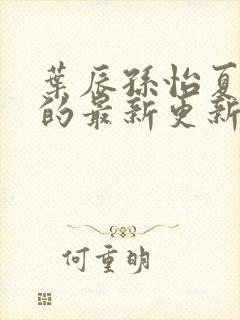 葉辰孫怡夏
的最新更新
何重明